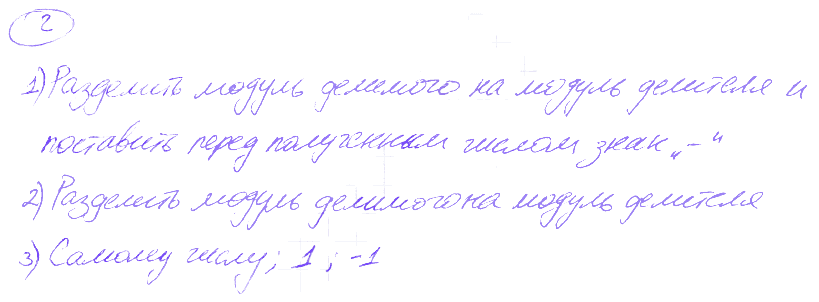 2
1) Разделить модуль делимого на модуль делителя и
поставить перед полученным числом знак „-“
2) Разделить модуль делимого на модуль делителя
3) Самому числу; 1 ; -1